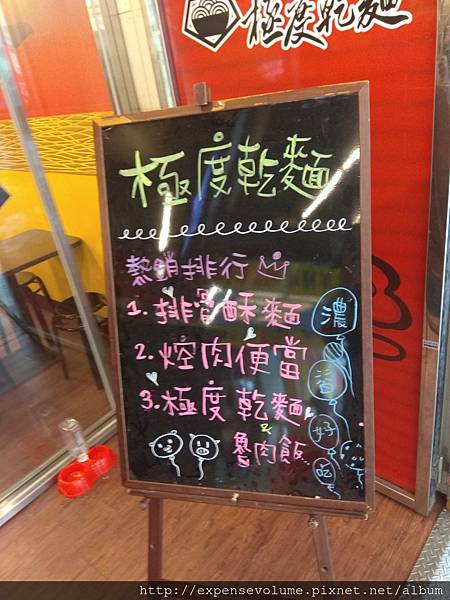 極度乾麵
極度乾麵
熱銷排行
1. 排骨酥麵
2. 焢肉便當
3. 極度乾麵
&
魯肉飯..
濃
香
好
吃
http://expensevolume.pixnet.net/album